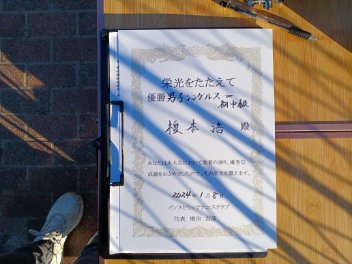 栄光をたたえて
優勝 男子シングルス 初中級
榎本 浩 殿
あなたは本大会において頭書の通り、優秀な
成績をおさめましたので、その栄光を讃えます。
2024年1月8日
インスピリッツテニスクラブ
代表 増田 吉彦